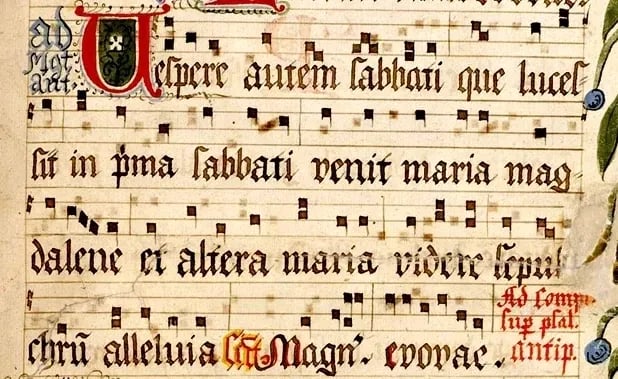 ad
Mgt
ant.
Vespere autem sabbati que luces-
sit in pma sabbati venit maria mag-
dalene et altera maria videre sepul
chrū alleluia Magn'. evovae.
Ad Comp
sup psal.
antip.